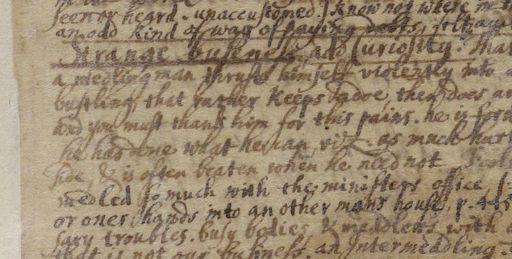 seen or heard. unaccustomed. I know not where in t
an odd kind of way of paying debts,
strange business, and Curiosity. that
a medling man thrusts himself violently into
bustling, that rather keeps adoe, then does an
and you must thank him for this pains. he is for
he has done what he can, viz. as much hurt
side & is often beaten when he need not
medled so much with the ministers office
or ones hands into an other mans house, p. 445
sary troubles. busy bodies, & medlers with
that is not our business. an Intermedling